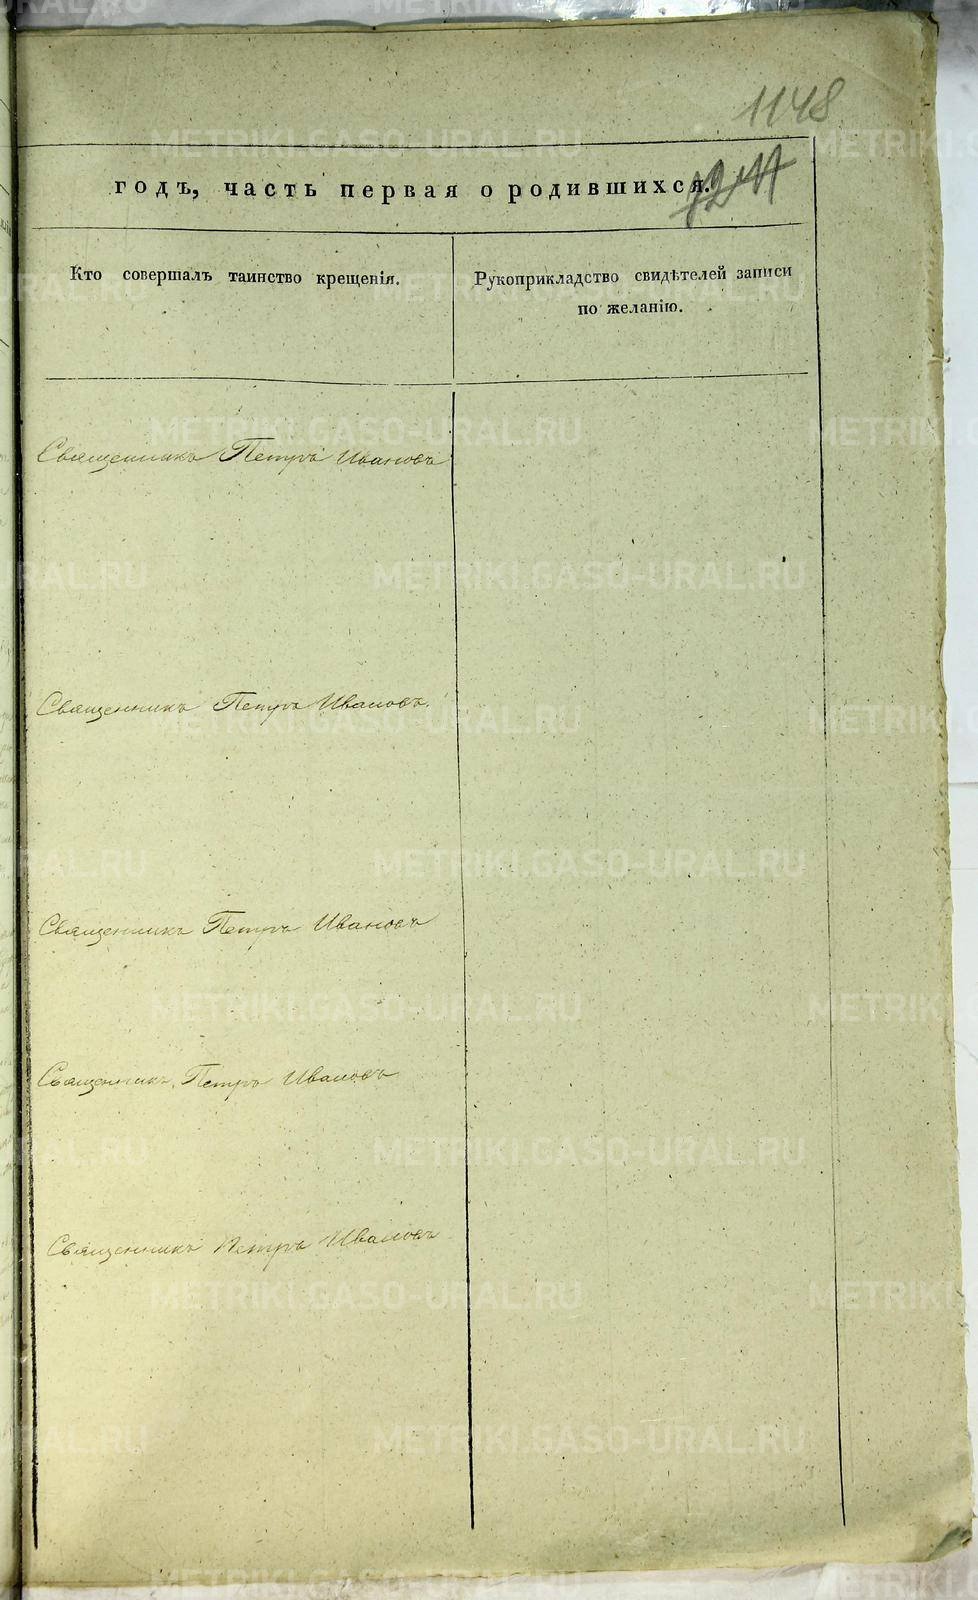 1148
годъ, часть первая о родившихся.
Кто совершалъ таинство крещенія.
Рукоприкладство свидѣтелей записи
по желанію.
Священникъ Петръ Ивановъ
Священникъ Петръ Ивановъ.
Священникъ Петръ Ивановъ
Священникъ Петръ Ивановъ
Священникъ Петръ Ивановъ
METRIKI.GASO-URAL.RU